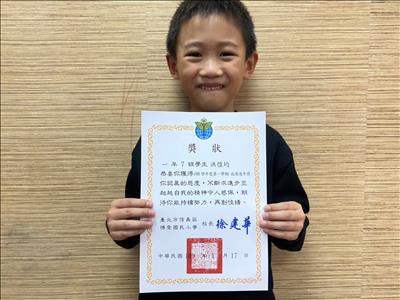 獎狀
一年7班學生 洪愷均
恭喜你獲得
你認真的態度，不斷求進步並
超越自我的精神令人感佩，期
待你能持續努力，再創佳績。
臺北市信義區
博愛國民小學 校長 徐建華
中華民國109年 月17日